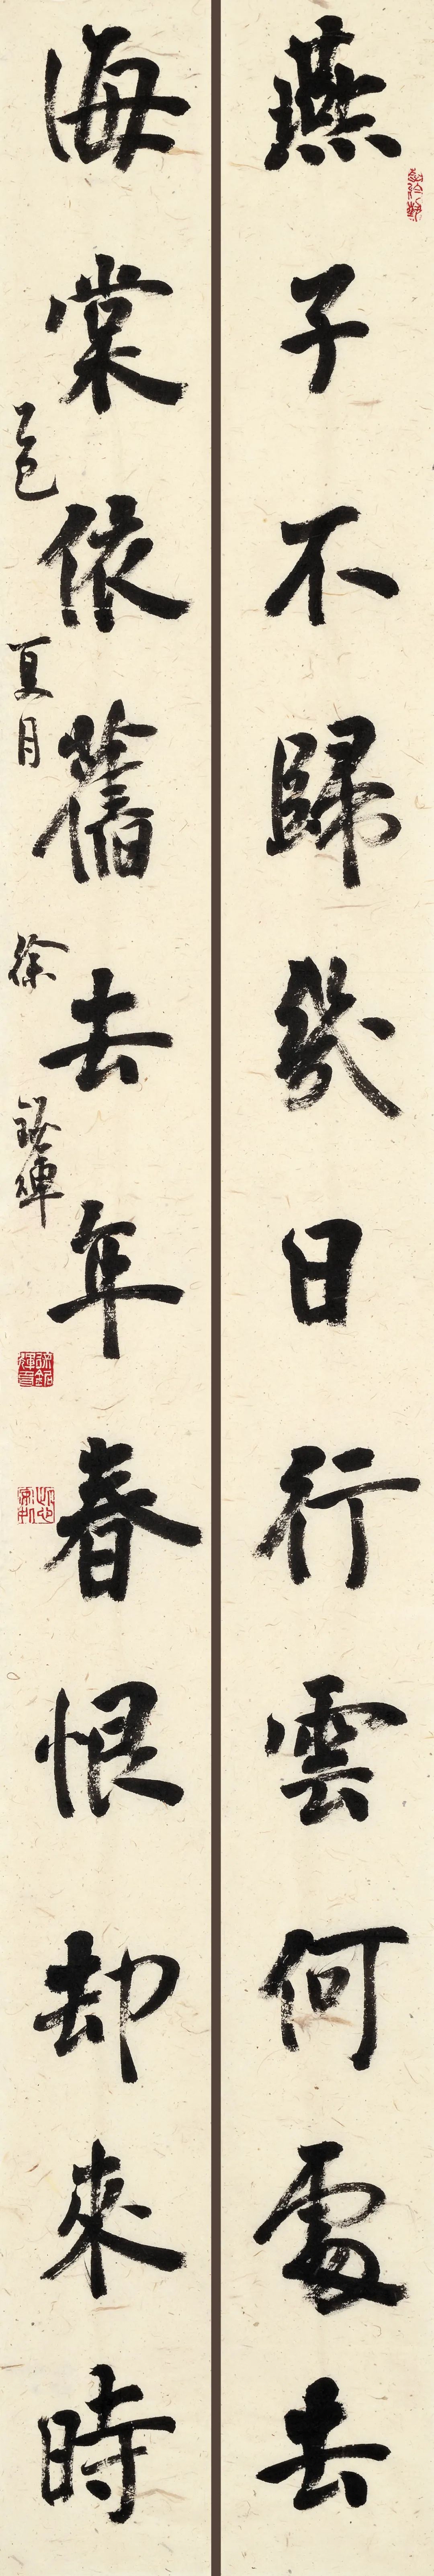 燕子不歸幾日行雲何處去
海棠依舊去年春恨却來時
乙巳夏月徐鈱輝